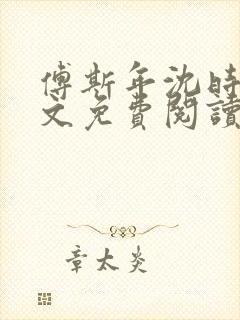 傅斯年沈时
文免費閱讀
章太炎